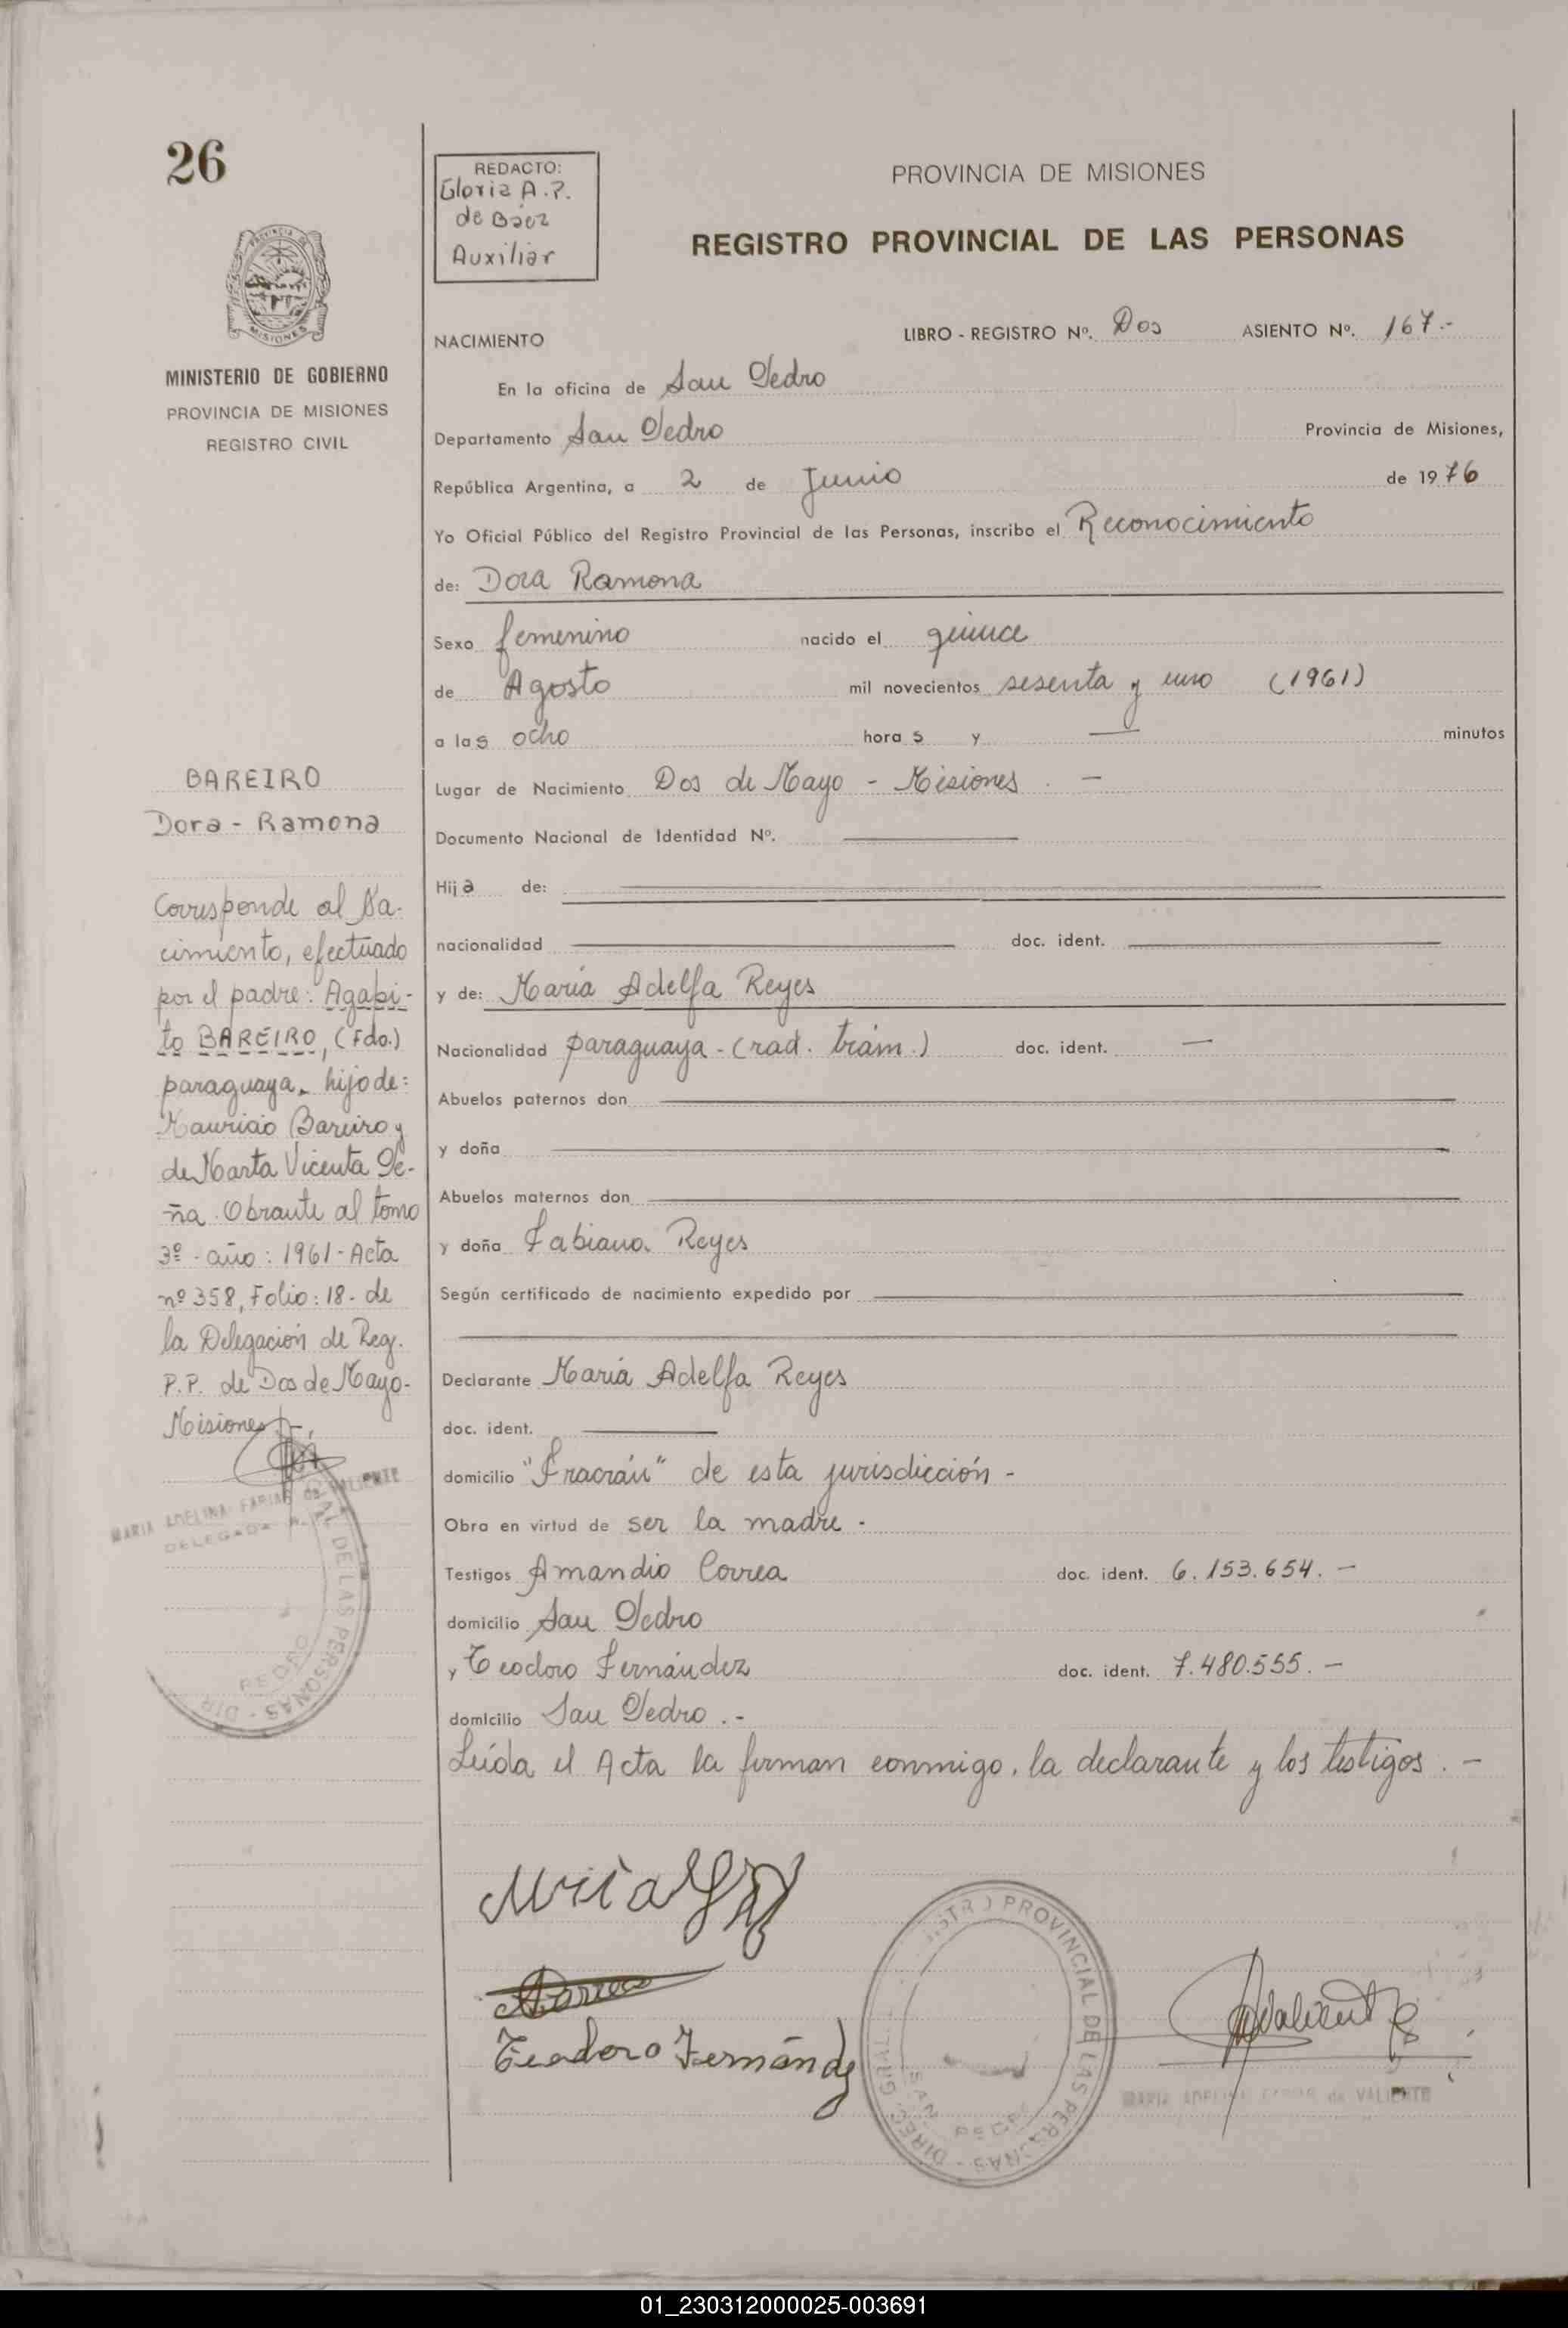 26
REDACTO:
Gloria A.P.
de Báez
Auxiliar
PROVINCIA DE MISIONES
REGISTRO PROVINCIAL DE LAS PERSONAS
PROVINCIA DE
MISIONES
MINISTERIO DE GOBIERNO
PROVINCIA DE MISIONES
REGISTRO CIVIL
NACIMIENTO
LIBRO - REGISTRO Nº. Dos ASIENTO Nº. 167.-
En la oficina de San Pedro
Departamento San Pedro Provincia de Misiones,
República Argentina, a 2 de Junio de 1976
Yo Oficial Público del Registro Provincial de las Personas, inscribo el Reconocimiento
de: Dora Ramona
Sexo femenino nacido el quince
de Agosto mil novecientos sesenta y uno (1961)
a las ocho horas y — minutos
Lugar de Nacimiento Dos de Mayo - Misiones . —
Documento Nacional de Identidad Nº.
Hija de:
nacionalidad doc. ident.
y de: María Adelfa Reyes
Nacionalidad paraguaya - (rad. trám.) doc. ident. —
Abuelos paternos don
y doña
Abuelos maternos don
y doña Fabiana Reyes
Según certificado de nacimiento expedido por
Declarante María Adelfa Reyes
doc. ident.
domicilio "Fracrán" de esta jurisdicción -
Obra en virtud de ser la madre -
Testigos Amandio Correa doc. ident. 6.153.654. —
domicilio San Pedro
y Teodoro Fernández doc. ident. 7.480.555. —
domicilio San Pedro . -
Leída el Acta la firman conmigo, la declarante y los testigos . —
BAREIRO
Dora - Ramona
Corresponde al Na-
cimiento, efectuado
por el padre: Agapi-
to BAREIRO, (Fdo.)
paraguaya, hijo de:
Mauricio Bareiro y
de Marta Vicenta Pe-
ña. Obrante al tomo
3º - año: 1961 - Acta
nº 358, Folio: 18 - de
la Delegación de Reg.
P.P. de Dos de Mayo -
Misiones -.
MARIA ADELINA FARIAS de VALIENTE
DELEGADA
AL DE LAS PERSONAS - DIR
PEDRO
Teodoro Fernánde
ISTRO PROVINCIAL DE LAS PERSONAS - DIREC GRAL
SAN PEDRO
Valiente
MARIA ADELINA FARIAS de VALIENTE
01_230312000025-003691